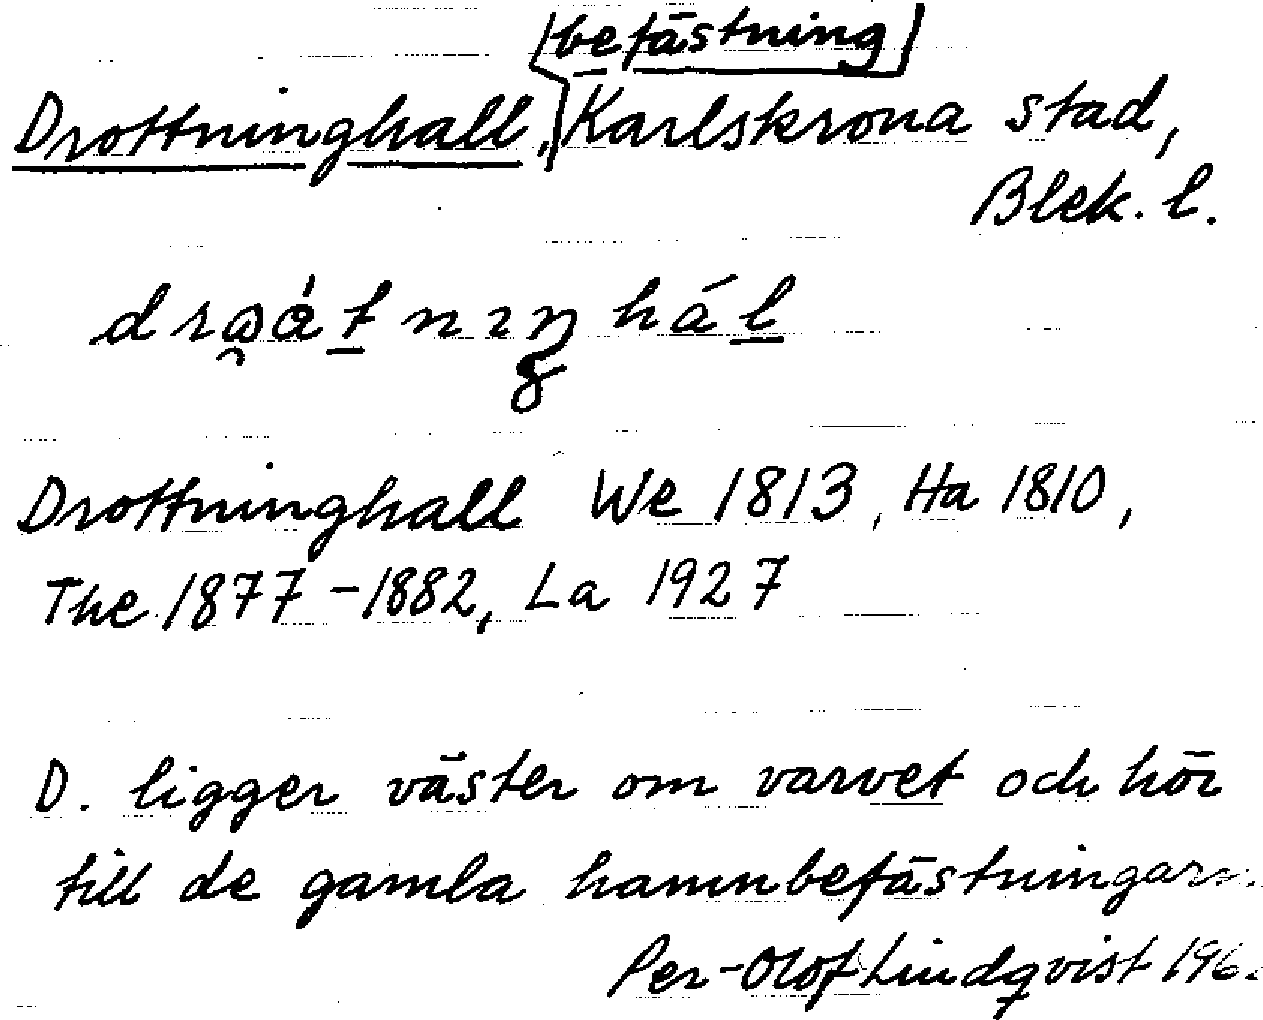 [befästning]
Drottninghall, Karlskrona stad,
Blek. l.
Drottninghall We 1813, Ha 1810,
The 1877-1882, La 1927
D. ligger väster om varvet och hör
till de gamla hamnbefästningar
Per-Olof Lindqvist